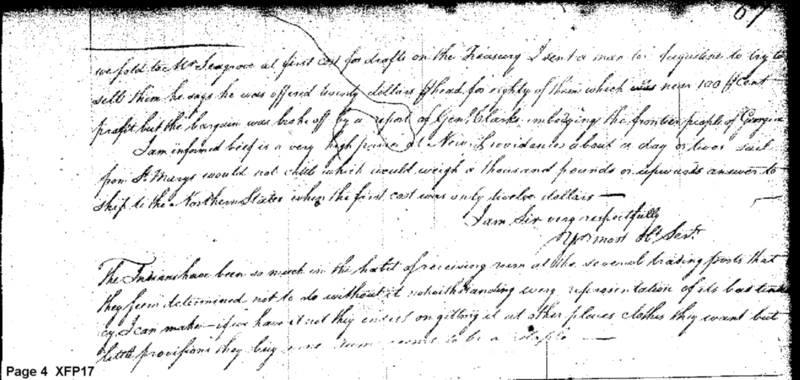 67
we sold to Mr Seagrove at first cost for drafts on the Treasury I sent a man to Augustine to try to
sell them he says he was offered twenty dollars pr head for eighty of them which was near 100 pr Cent
profit but the bargain was broke off by a report of Genl Clarks imbodying the frontier people of Georgia
I am informed beef is a very high price at New Providence about a day or two's sail
from St Marys would not cattle which would weigh a thousand pounds or upwards answer to
ship to the Northern States when the first cost was only twelve dollars —
I am Sir very respectfully
Yr most Ht Sert
The Indians have been so much in the habit of receiving rum at the several trading posts that
they seem determined not to do without it notwithstanding every representation of its bad tenden
cy I can make if we have it not they insist on getting it at other places clothes they want but
little provisions they buy none rum seems to be a staple —
Page 4 XFP17